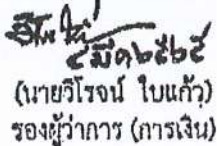 ๔ มีค ๒๕๒๕
(นายวิโรจน์ ใบแก้ว)
รองผู้ว่าการ (การเงิน)